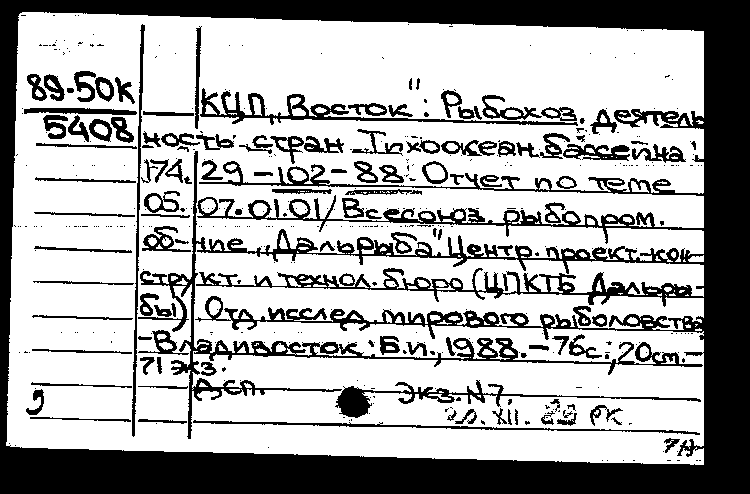 89-50К
5408
КЦП „Восток": Рыбохоз. деятель
ность стран Тихоокеан. бассейна:
174. 29-102-88. Отчет по теме
05. 07.01.01/Всесоюз. рыбопром.
об-ние „Дальрыба". Центр. проект.-кон-
структ. и технол. бюро (ЦПКТБ Дальры-
бы) Отд. исслед. мирового рыболовства
-Владивосток: Б.и., 1988.-76с.; 20см.-
71 экз.
Дсп. Экз. N7.
9
20.XII. 89 РК.